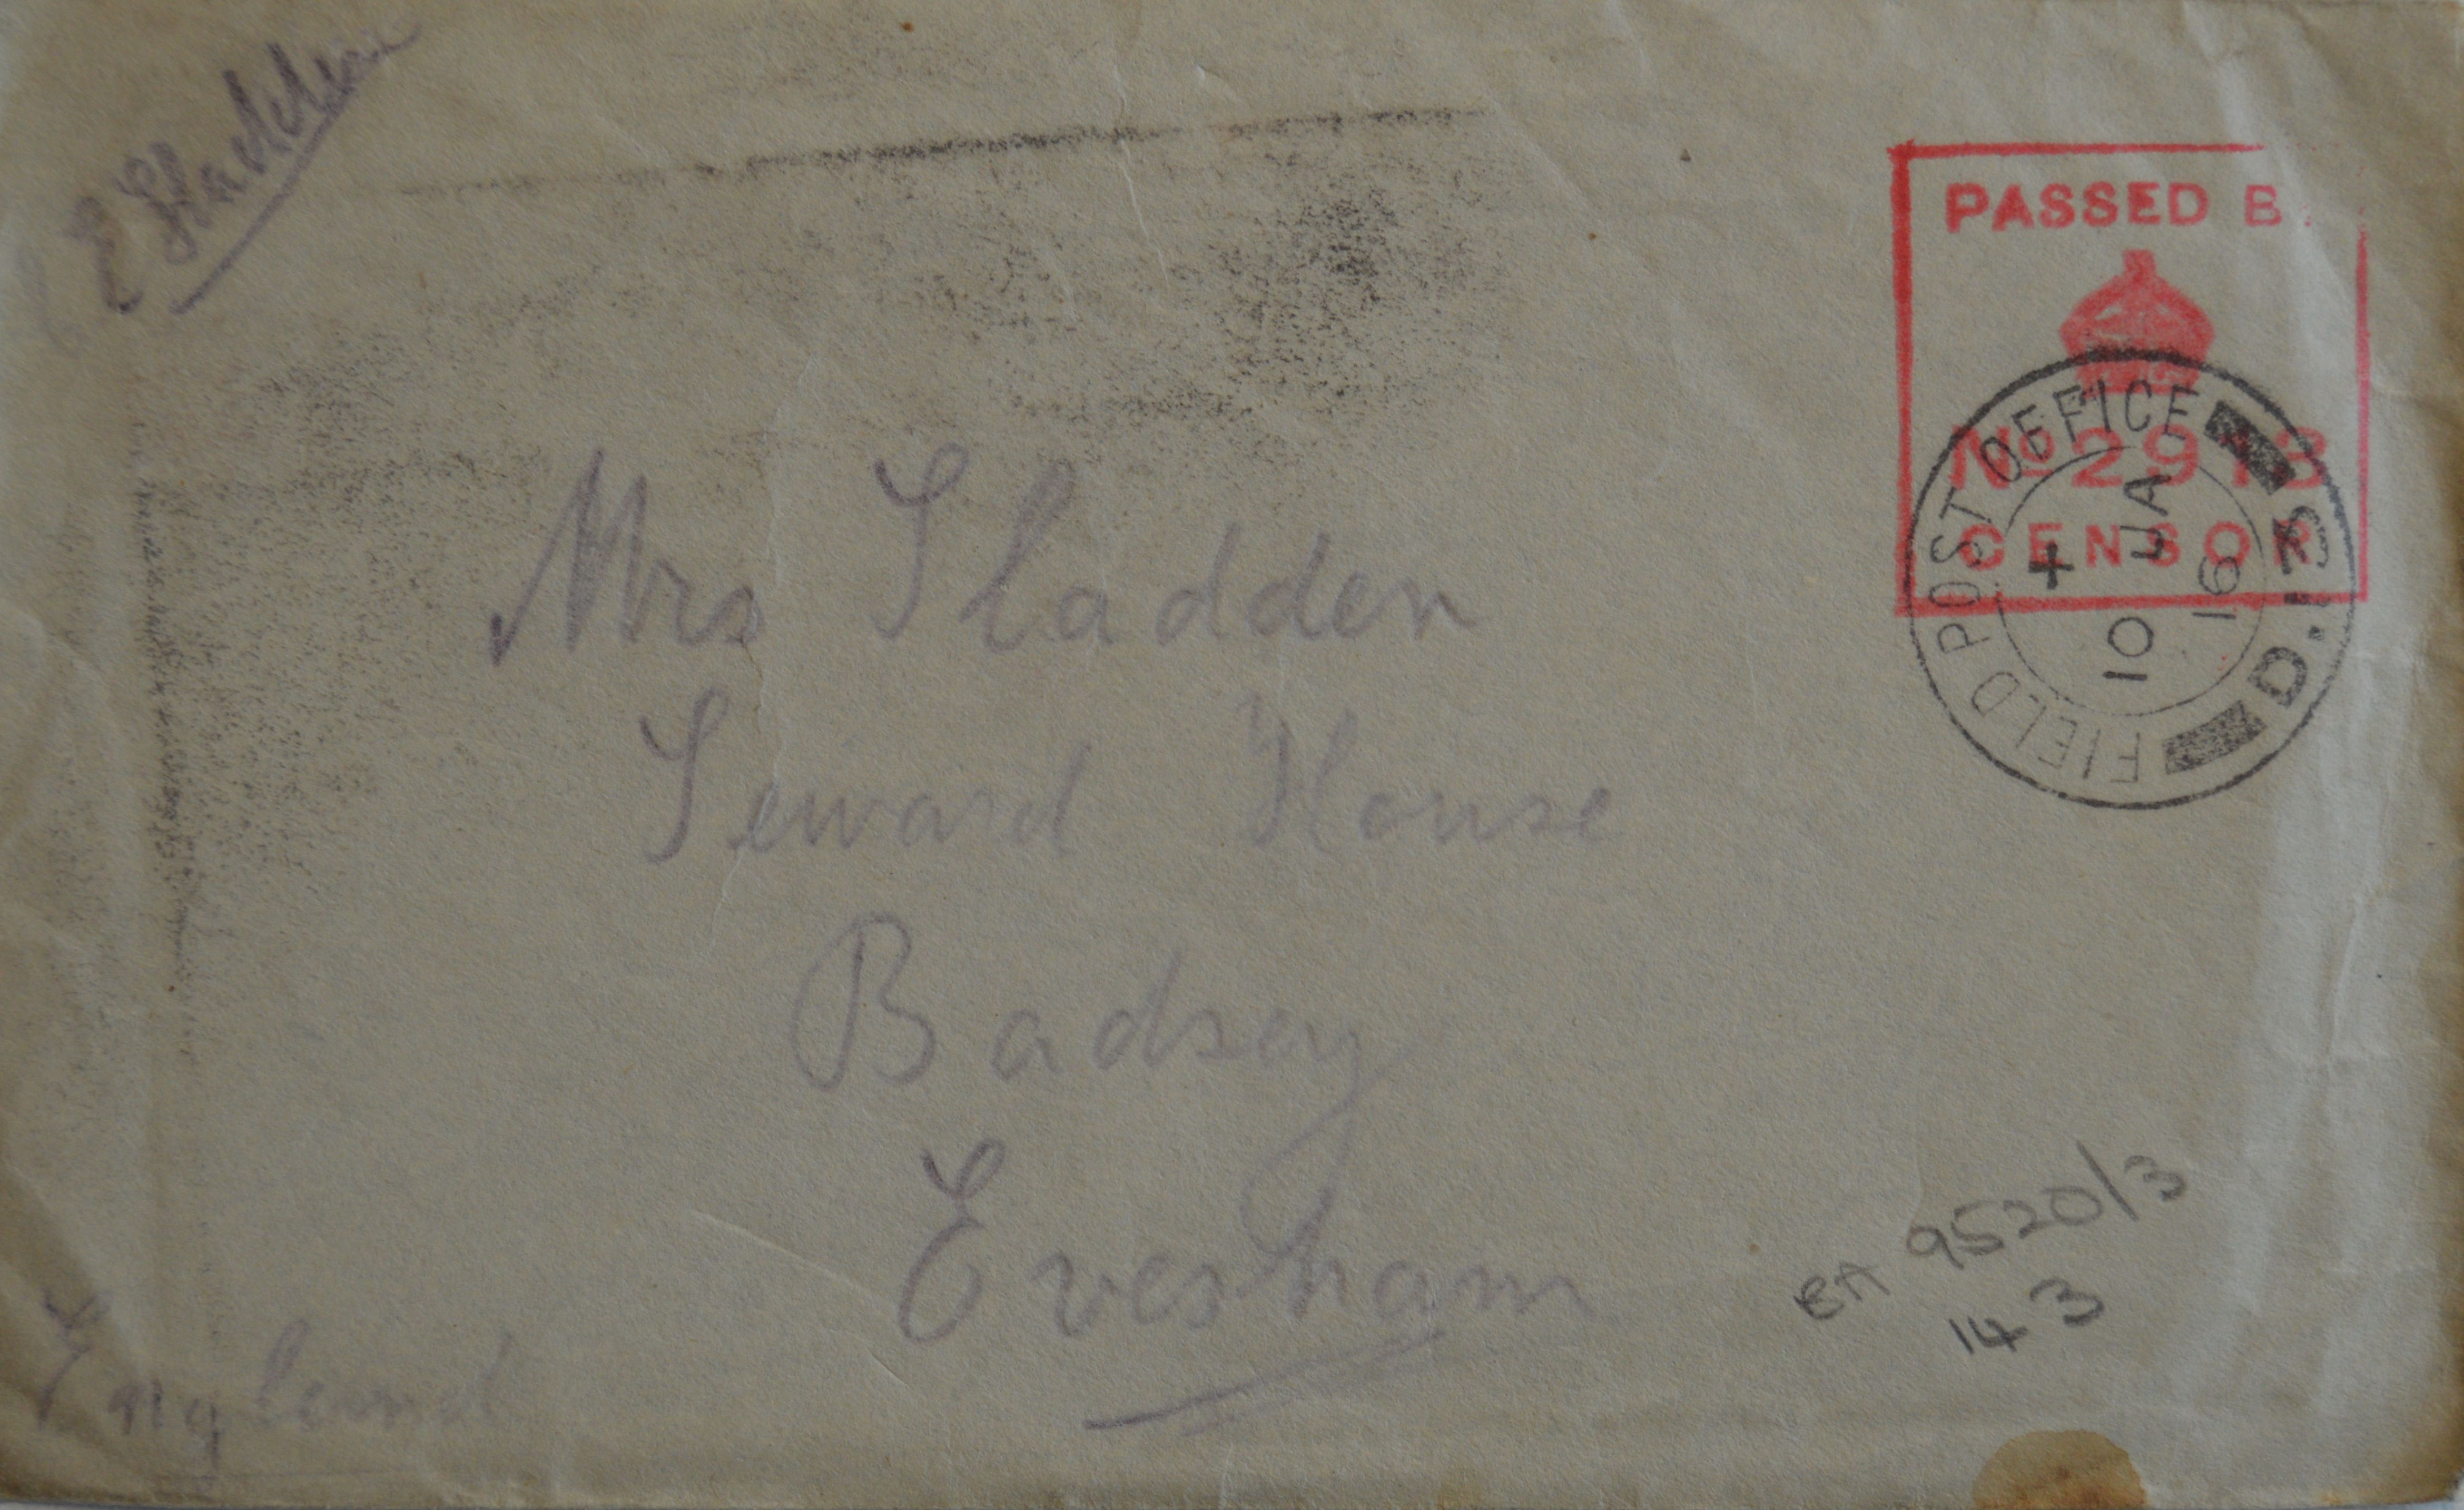 E Sladden
PASSED B
No 2913
CENSOR
FIELD POST OFFICE
D.13
4
10 JA
16
Mrs Sladden
Seward House
Badsey
Evesham
England
BA 9520/3
143